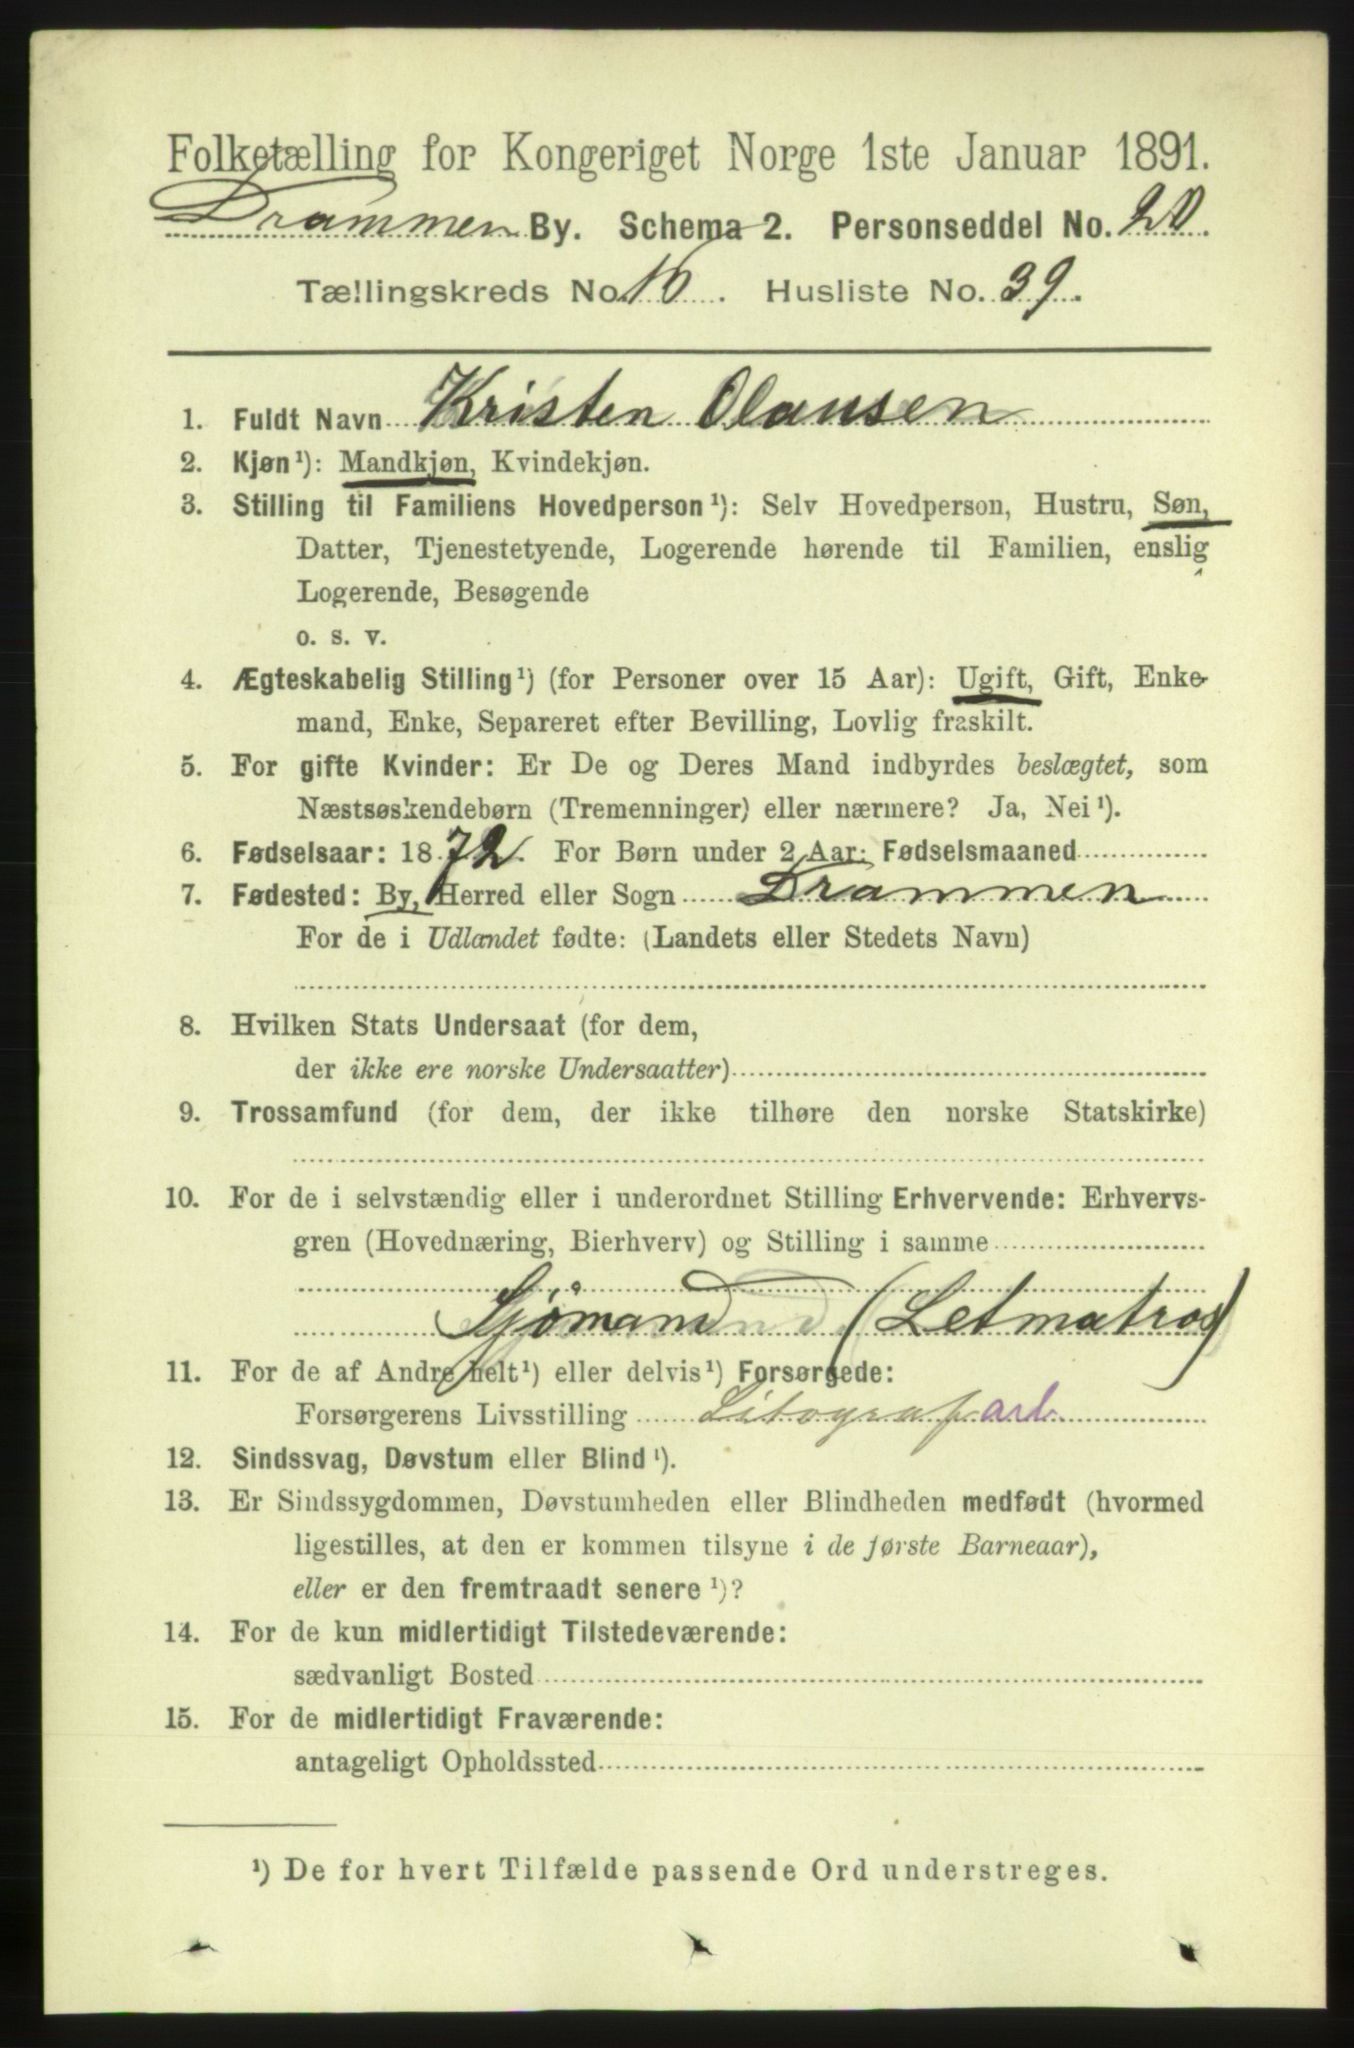 Folketælling for Kongeriget Norge 1ste Januar 1891.
Drammen By. Schema 2. Personseddel No. 20.
Tællingskreds No. 10. Husliste No. 39.
1. Fuldt Navn Kristen Olausen
2. Kjøn¹): Mandkjøn, Kvindekjøn.
3. Stilling til Familiens Hovedperson¹): Selv Hovedperson, Hustru, Søn,
Datter, Tjenestetyende, Logerende hørende til Familien, enslig
Logerende, Besøgende
o. s. v.
4. Ægteskabelig Stilling¹) (for Personer over 15 Aar): Ugift, Gift, Enke-
mand, Enke, Separeret efter Bevilling, Lovlig fraskilt.
5. For gifte Kvinder: Er De og Deres Mand indbyrdes beslægtet, som
Næstsøskendebørn (Tremenninger) eller nærmere? Ja, Nei¹).
6. Fødselsaar: 1872. For Børn under 2 Aar: Fødselsmaaned
7. Fødested: By, Herred eller Sogn Drammen
For de i Udlandet fødte: (Landets eller Stedets Navn)
8. Hvilken Stats Undersaat (for dem,
der ikke ere norske Undersaatter)
9. Trossamfund (for dem, der ikke tilhøre den norske Statskirke)
10. For de i selvstændig eller i underordnet Stilling Erhvervende: Erhvervs-
gren (Hovednæring, Bierhverv) og Stilling i samme
Sjømand (Letmatros)
11. For de af Andre helt¹) eller delvis¹) Forsørgede:
Forsørgerens Livsstilling Litografarb
12. Sindssvag, Døvstum eller Blind¹).
13. Er Sindssygdommen, Døvstumheden eller Blindheden medfødt (hvormed
ligestilles, at den er kommen tilsyne i de første Barneaar),
eller er den fremtraadt senere¹)?
14. For de kun midlertidigt Tilstedeværende:
sædvanligt Bosted
15. For de midlertidigt Fraværende:
antageligt Opholdssted
¹) De for hvert Tilfælde passende Ord understreges.